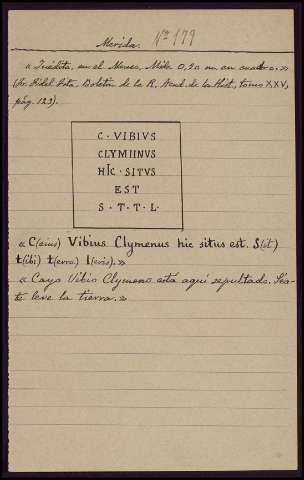 Merida. Nº 179
« Inédita, en el Museo, Mide 0,20 en cuadro.»
(Fr. Fidel Fita, Boletín de la R. Acad. de la Hist., tomo XXV,
pág. 123).
C · VIBIVS
CLYMIINVS
HIC · SITVS
EST
S · T · T · L ·
« C(aius) Vibius Clymenus hic situs est. S(it)
t(ibi) t(erra) l(evis). »
« Cayo Vibio Clymeno está aquí sepultado. Séa-
te leve la tierra. »